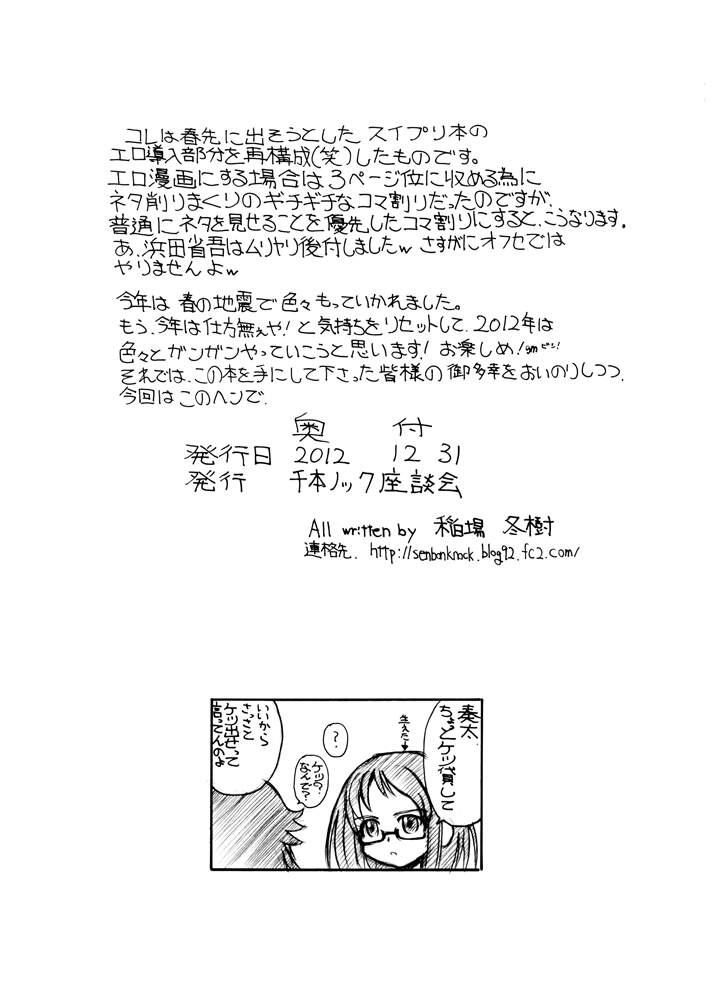 コレは春先に出そうとした スイプリ本の
エロ導入部分を再構成(笑)したものです。
エロ漫画にする場合は3ページ位に収める為に
ネタ削りまくりのギチギチなコマ割りだったのですが、
普通にネタを見せることを優先したコマ割りにすると、こうなります。
あ、浜田省吾はムリヤリ後付しましたw さすがにオフセでは
やりませんよw
今年は 春の地震で色々もっていかれました。
もう、今年は仕方無ぇや!と気持ちをリセットして、2012年は
色々とガンガンやっていこうと思います! お楽しめ!
それでは、この本を手にして下さった皆様の御多幸をおいのりしつつ、
今回はこのヘンで、
奥 付
発行日 2012 12 31
発行 千本ノック座談会
All written by 稲場 冬樹
連絡先. http://senbonknock.blog92.fc2.com/
奏太
ちょっとケツ貸して
生えた
?
ケツ?
なんで?
いいから
さっさと
ケツ出せって
言ってんのよ